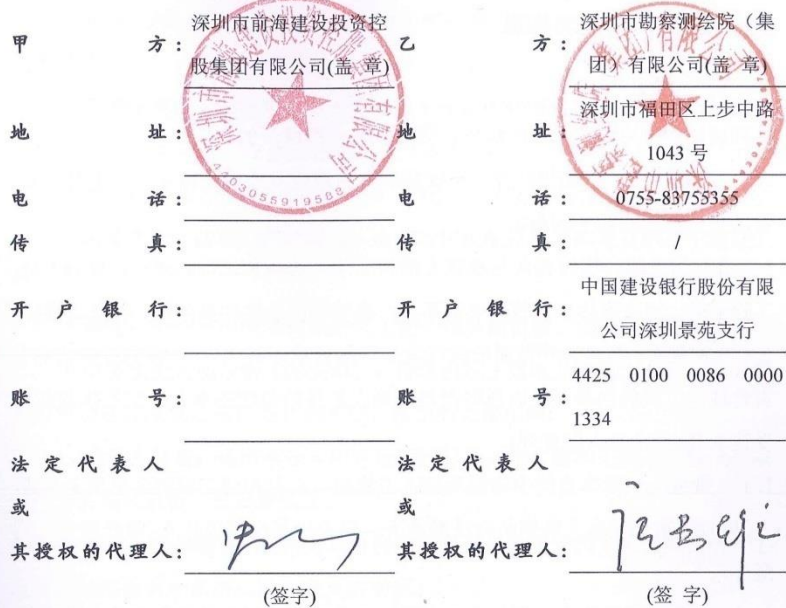 甲方：深圳市前海建设投资控
股集团有限公司(盖 章)
地址：
电话：
传真：
开户银行：
账号：
法定代表人
或
其授权的代理人：
(签字)
4403055919588
乙方：深圳市勘察测绘院（集
团）有限公司(盖 章)
地址：深圳市福田区上步中路
1043 号
电话：0755-83755355
传真：/
开户银行：中国建设银行股份有限
公司深圳景苑支行
账号：4425 0100 0086 0000
1334
法定代表人
或
其授权的代理人：
(签 字)